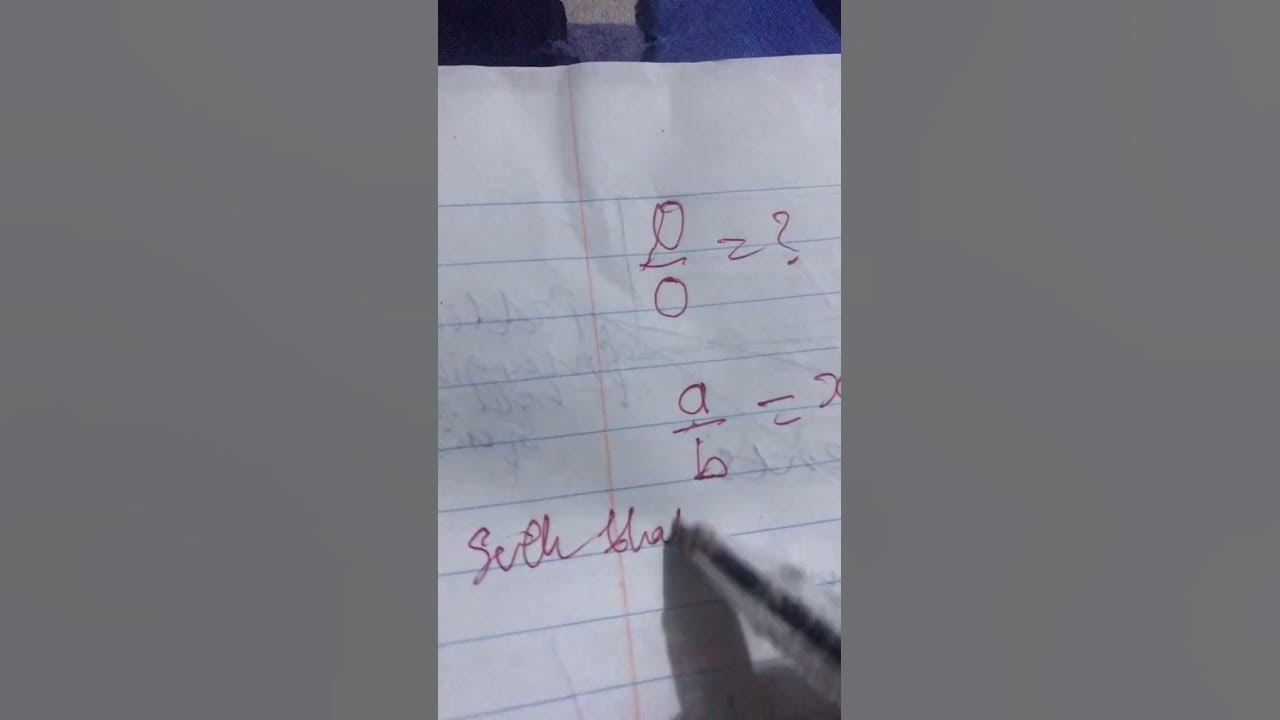 0/0 = ?
a/b = x
Such that